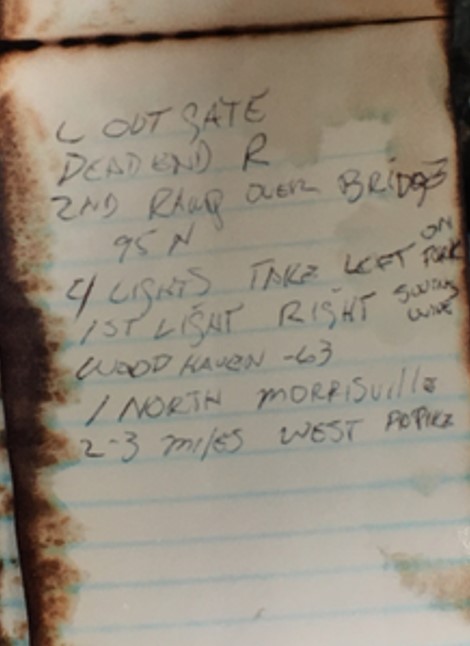 L OUT GATE
DEAD END R
2ND RAMP OVER BRIDGE
95 N
4 LIGHTS TAKE LEFT ON
1ST LIGHT RIGHT SWING
WOODHAVEN -63
1 NORTH MORRISVILLE
2-3 MILES WEST